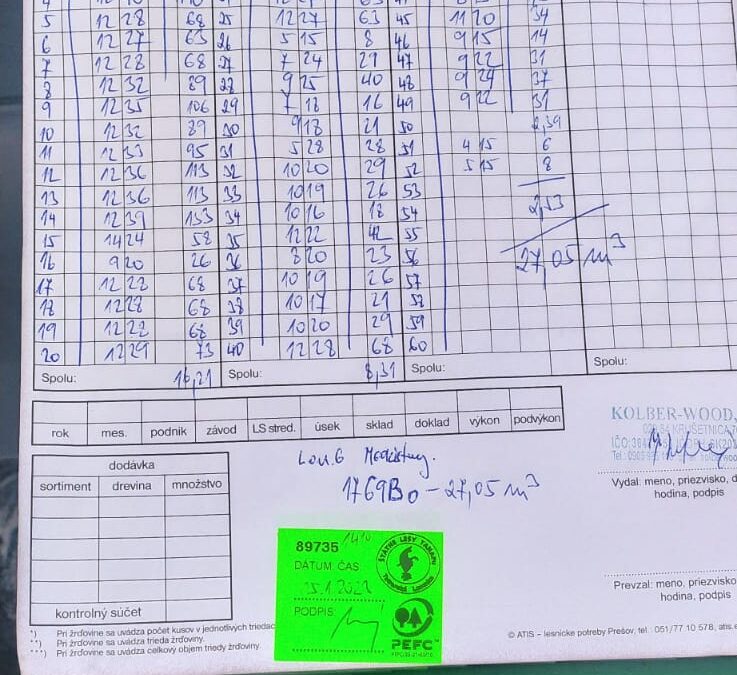 5 12 28 68 25 12 27 63 45 11 20 34
6 12 27 63 26 5 15 8 46 9 15 14
7 12 28 68 27 7 24 27 47 9 22 31
8 12 32 89 28 9 25 40 48 9 24 37
9 12 35 106 29 7 18 16 49 9 22 31
10 12 32 89 30 9 18 21 50 2,39
11 12 33 95 31 5 28 28 51 4 15 6
12 12 36 113 32 10 20 29 52 5 15 8
13 12 36 113 33 10 19 26 53
14 12 39 133 34 10 16 18 54 2,53
15 14 24 58 35 12 22 42 55
16 9 20 26 36 8 20 23 56 27,05 m³
17 12 28 68 37 10 19 26 57
18 12 28 68 38 10 17 21 58
19 12 28 68 39 10 20 29 59
20 12 29 73 40 12 28 68 60
Spolu: 16,21 Spolu: 8,31 Spolu: Spolu:
rok mes. podnik závod LS stred. úsek sklad doklad výkon podvýkon
KOLBER-WOOD,
dodávka
sortiment drevina množstvo
1769Bo - 27,05 m³
Vydal: meno, priezvisko, d
hodina, podpis
89735
DÁTUM ČAS
PODPIS
ŠTÁTNE LESY TANAPU
PEFC™
Prevzal: meno, priezvisko
hodina, podpis
kontrolný súčet
*) Pri žrďovine sa uvádza počet kusov v jednotlivých triedac
**) Pri žrďovine sa uvádza trieda žrďoviny.
***) Pri žrďovine sa uvádza celkový objem triedy žrďoviny.
© ATIS – lesnícke potreby Prešov, tel.: 051/77 10 578, atis.